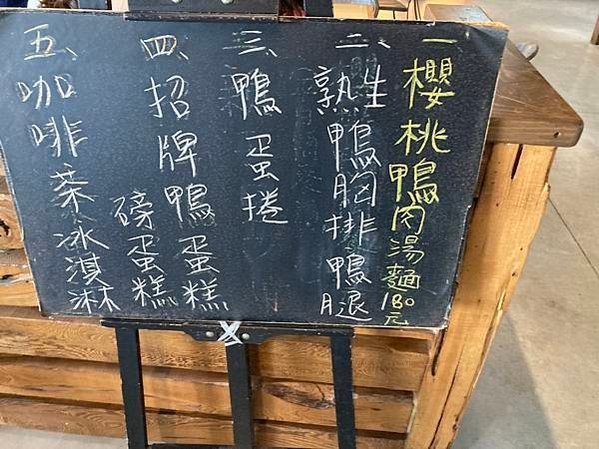 一櫻桃鴨肉湯麵180元
二、熟生鴨胸排鴨腿
三、鴨蛋捲
四、招牌鴨蛋糕
磅蛋糕
五、咖啡茶冰淇淋